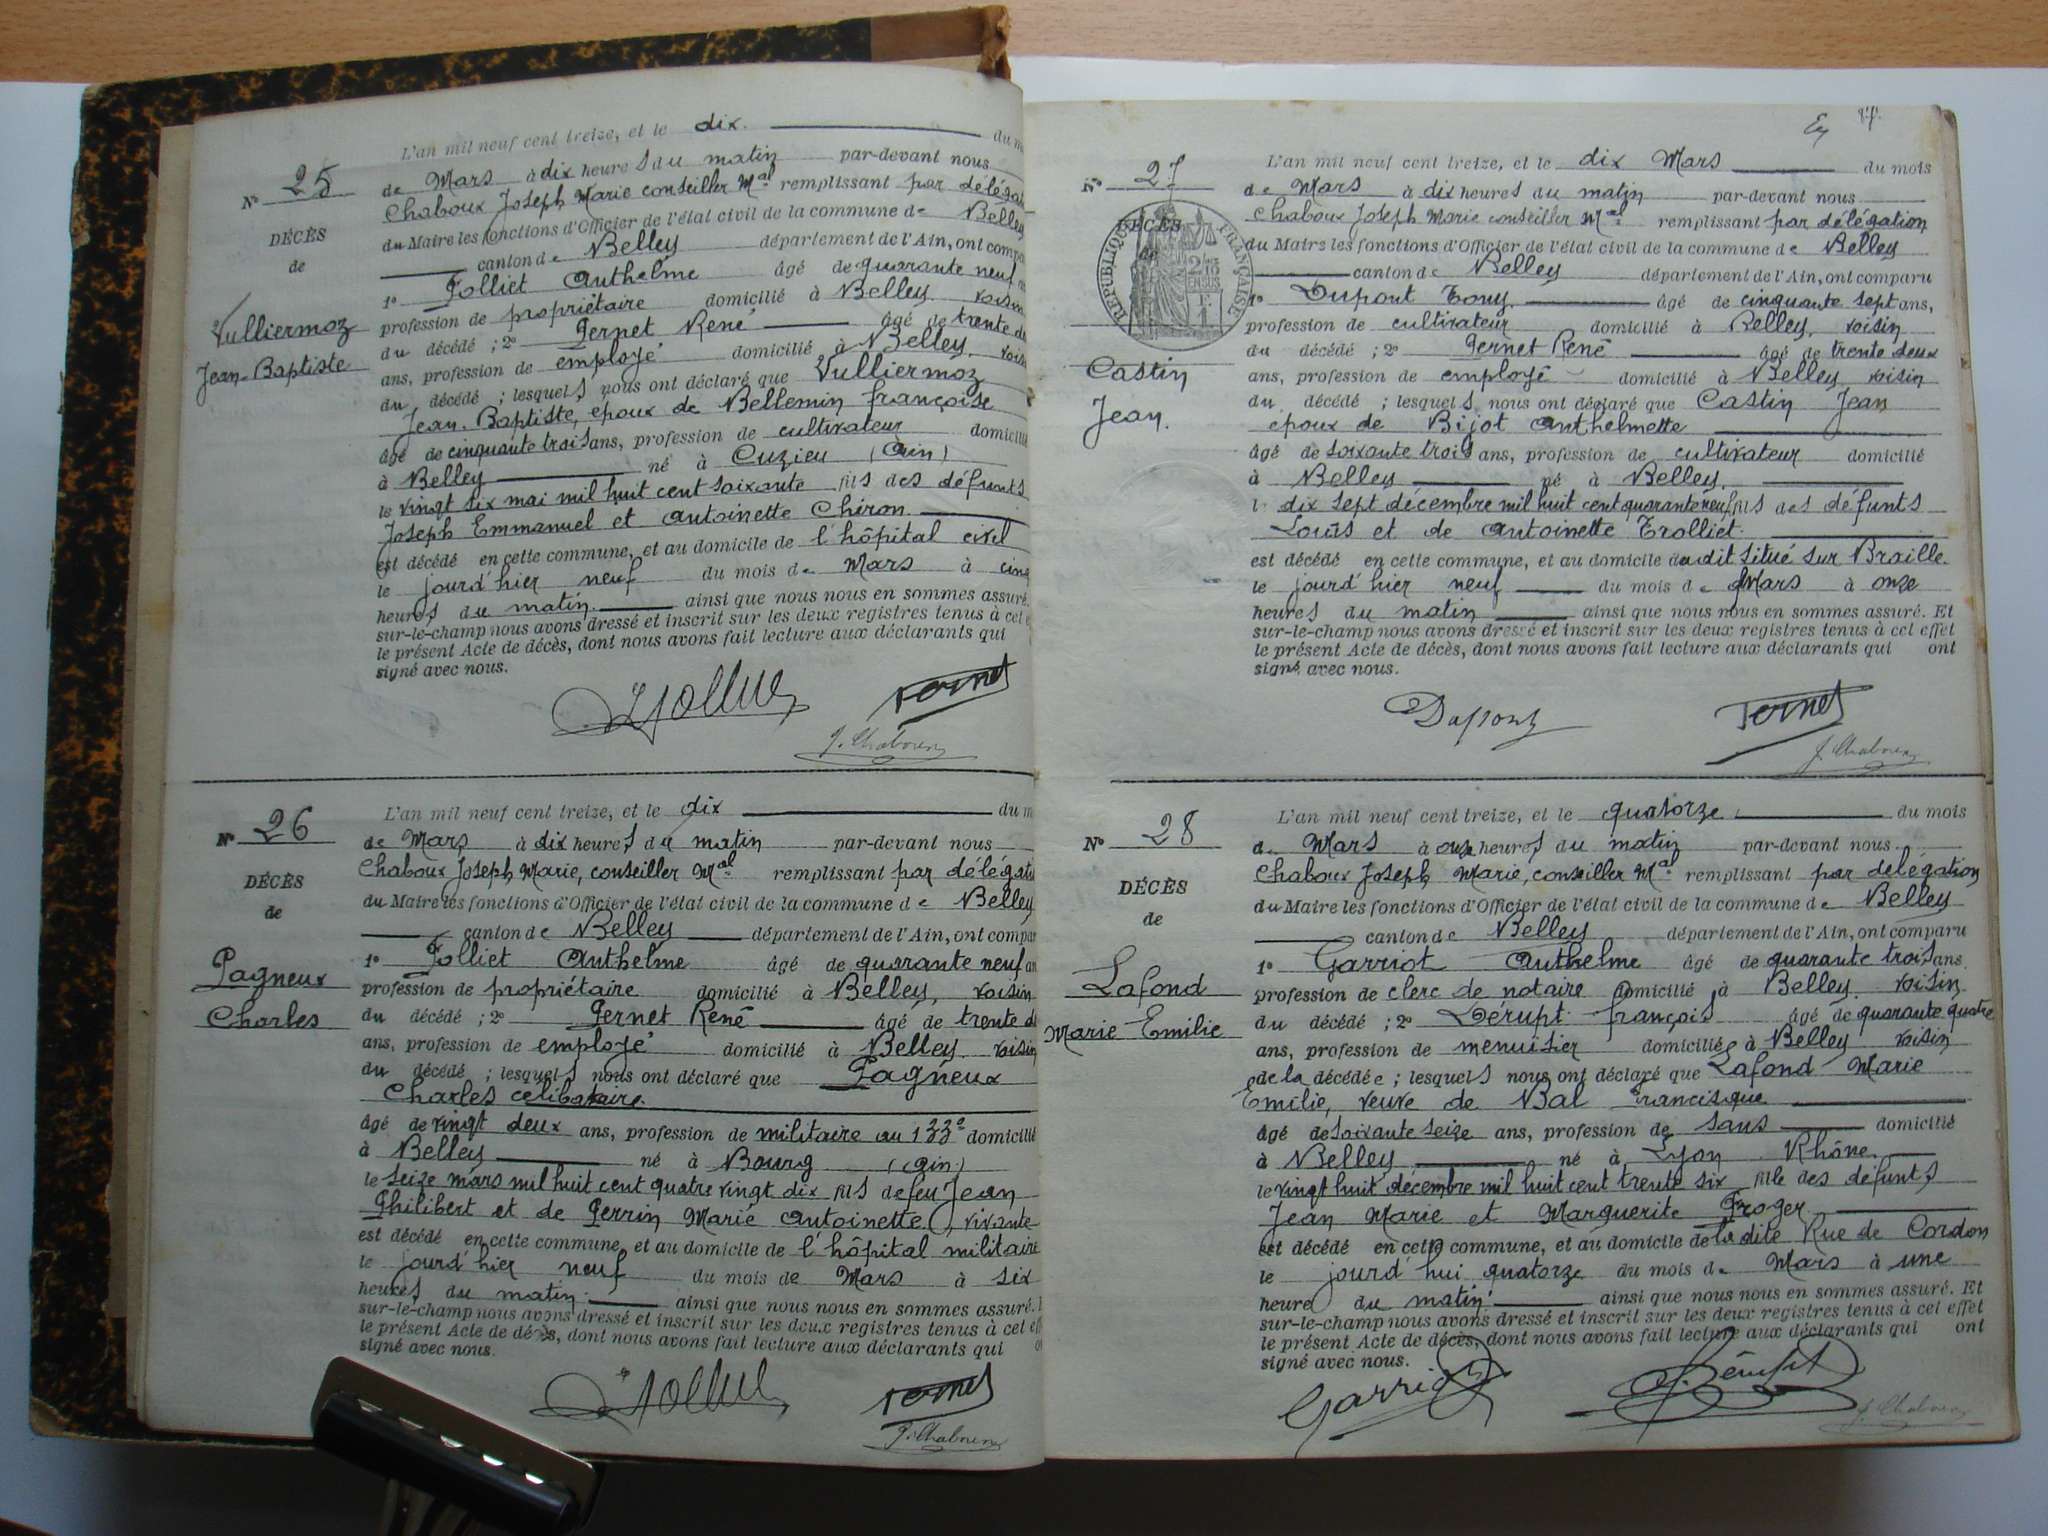 N° 25
DÉCÈS
de
Vulliermoz
Jean-Baptiste
L'an mil neuf cent treize, et le dix. du m
de Mars à dix heures du matin par-devant nous
Chaboux Joseph Marie conseiller Mal remplissant par déléga
du Maire les fonctions d'Officier de l'état civil de la commune de Belley
canton de Belley département de l'Ain, ont compa
1° Jolliet Anthelme âgé de quarante neuf
profession de propriétaire domicilié à Belley voisin
du décédé ; 2° Pernet René âgé de trente de
ans, profession de employé domicilié à Belley, vois
du décédé ; lesquels nous ont déclaré que Vulliermoz
Jean-Baptiste, époux de Bellemin françoise
âgé de cinquante trois ans, profession de cultivateur domicilié
à Belley né à Cuzieu (Ain)
le vingt six mai mil huit cent soixante fils des défunts
Joseph Emmanuel et Antoinette Chiron
est décédé en cette commune, et au domicile de l'hôpital civil
le jourd'hier neuf du mois de Mars à cinq
heures du matin. ainsi que nous nous en sommes assuré.
sur-le-champ nous avons dressé et inscrit sur les deux registres tenus à cet e
le présent Acte de décès, dont nous avons fait lecture aux déclarants qui
signé avec nous.
Jolliet Pernet
J. Chaboux
N° 26
DÉCÈS
de
Pagneux
Charles
L'an mil neuf cent treize, et le dix du m
de Mars à dix heures du matin par-devant nous
Chaboux Joseph Marie, conseiller Mal remplissant par déléga
du Maire les fonctions d'Officier de l'état civil de la commune de Belley
canton de Belley département de l'Ain, ont compar
1° Jolliet Anthelme âgé de quarante neuf an
profession de propriétaire domicilié à Belley, voisin
du décédé ; 2° Pernet René âgé de trente d
ans, profession de employé domicilié à Belley voisin
du décédé ; lesquels nous ont déclaré que Pagneux
Charles celibataire.
âgé de vingt deux ans, profession de militaire au 133e domicilié
à Belley né à Bourg (Ain)
le seize mars mil huit cent quatre vingt dix fils de feu Jean
Philibert et de Perrin Marie Antoinette, vivante
est décédé en cette commune, et au domicile de l'hôpital militaire
le jourd'hier neuf du mois de Mars à six
heures du matin. ainsi que nous nous en sommes assuré.
sur-le-champ nous avons dressé et inscrit sur les deux registres tenus à cet eff
le présent Acte de décès, dont nous avons fait lecture aux déclarants qui o
signé avec nous.
Jolliet Pernet
J. Chaboux
N° 27
DÉCÈS
de
RÉPUBLIQUE FRANÇAISE
Castin
Jean.
L'an mil neuf cent treize, et le dix Mars du mois
de Mars à dix heures du matin par-devant nous
Chaboux Joseph Marie conseiller Mal remplissant par délégation
du Maire les fonctions d'Officier de l'état civil de la commune de Belley
canton de Belley département de l'Ain, ont comparu
1° Dupont Tony. âgé de cinquante sept ans,
profession de cultivateur domicilié à Belley, voisin
du décédé ; 2° Pernet René âgé de trente deux
ans, profession de employé domicilié à Belley voisin
du décédé ; lesquels nous ont déclaré que Castin Jean
époux de Bijot Anthelmette
âgé de soixante trois ans, profession de cultivateur domicilié
à Belley né à Belley.
le dix sept décembre mil huit cent quarante neuf fils des défunts
Louis et de Antoinette Trolliet.
est décédé en cette commune, et au domicile du dit situé sur Braille.
le jourd'hier neuf du mois de Mars à onze
heures du matin ainsi que nous nous en sommes assuré. Et
sur-le-champ nous avons dressé et inscrit sur les deux registres tenus à cet effet
le présent Acte de décès, dont nous avons fait lecture aux déclarants qui ont
signé avec nous.
Dupont Pernet
J. Chaboux
N° 28
DÉCÈS
de
Lafond
Marie Emilie
L'an mil neuf cent treize, et le quatorze du mois
de Mars à onze heures du matin par-devant nous
Chaboux Joseph Marie, conseiller Mal remplissant par délégation
du Maire les fonctions d'Officier de l'état civil de la commune de Belley
canton de Belley département de l'Ain, ont comparu
1° Garriot Anthelme âgé de quarante trois ans
profession de clerc de notaire domicilié à Belley. voisin
du décédé ; 2° Dérupt françois âgé de quarante quatre
ans, profession de menuisier domicilié à Belley voisin
de la décédée ; lesquels nous ont déclaré que Lafond Marie
Emilie, veuve de Bal Francisque
âgé de soixante seize ans, profession de sans domicilié
à Belley né à Lyon Rhône.
le vingt huit décembre mil huit cent trente six fille des défunts
Jean Marie et Marguerite Froger
est décédé en cette commune, et au domicile de la dite Rue de Cordon
le jourd'hui quatorze du mois de Mars à une
heure du matin ainsi que nous nous en sommes assuré. Et
sur-le-champ nous avons dressé et inscrit sur les deux registres tenus à cet effet
le présent Acte de décès, dont nous avons fait lecture aux déclarants qui ont
signé avec nous.
Garriot F. Dérupt
J. Chaboux